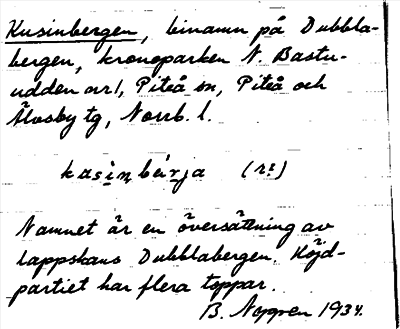 Kusinbergen, binamn på Dubbla-
bergen, kronoparken N. Bastu-
udden nr 1, Piteå sn, Piteå och
Älvsby tg, Norrb. l.
kusinbärja (rs)
Namnet är en översättning av
lappskans Dubblabergen. Höjd-
partiet har flera toppar.
B. Noppen 1934.